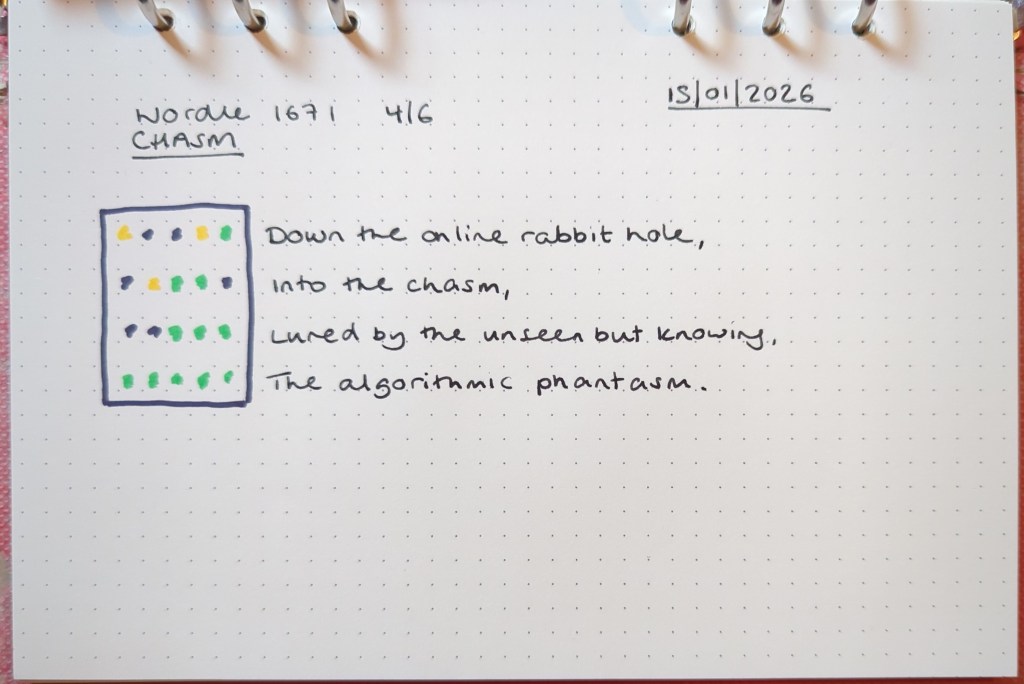 Wordle 1671 4/6
15/01/2026
CHASM
Down the online rabbit hole,
into the chasm,
Lured by the unseen but knowing,
The algorithmic phantasm.